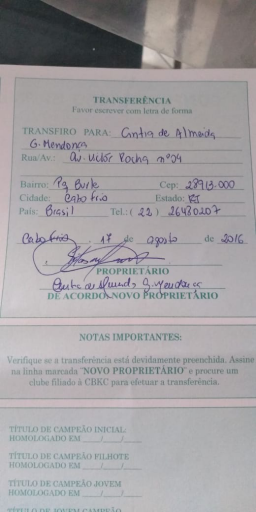 TRANSFERÊNCIA
Favor escrever com letra de forma
TRANSFIRO PARA: Cintia de Almeida
G. Mendonça
Rua/Av.: Av. Victor Rocha nº 04
Bairro: Pq Burle Cep: 28913.000
Cidade: Cabo Frio Estado: RJ
País: Brasil Tel.: (22) 26430207
Cabo Frio, 17 de agosto de 2016
PROPRIETÁRIO
Cintia de Almeida G. Mendonça
DE ACORDO: NOVO PROPRIETÁRIO
NOTAS IMPORTANTES:
Verifique se a transferência está devidamente preenchida. Assine
na linha marcada "NOVO PROPRIETÁRIO" e procure um
clube filiado à CBKC para efetuar a transferência.
TÍTULO DE CAMPEÃO INICIAL
HOMOLOGADO EM ___/___/___
TÍTULO DE CAMPEÃO FILHOTE
HOMOLOGADO EM ___/___/___
TÍTULO DE CAMPEÃO JOVEM
HOMOLOGADO EM ___/___/___
TÍTULO DE JOVEM CAMPEÃO